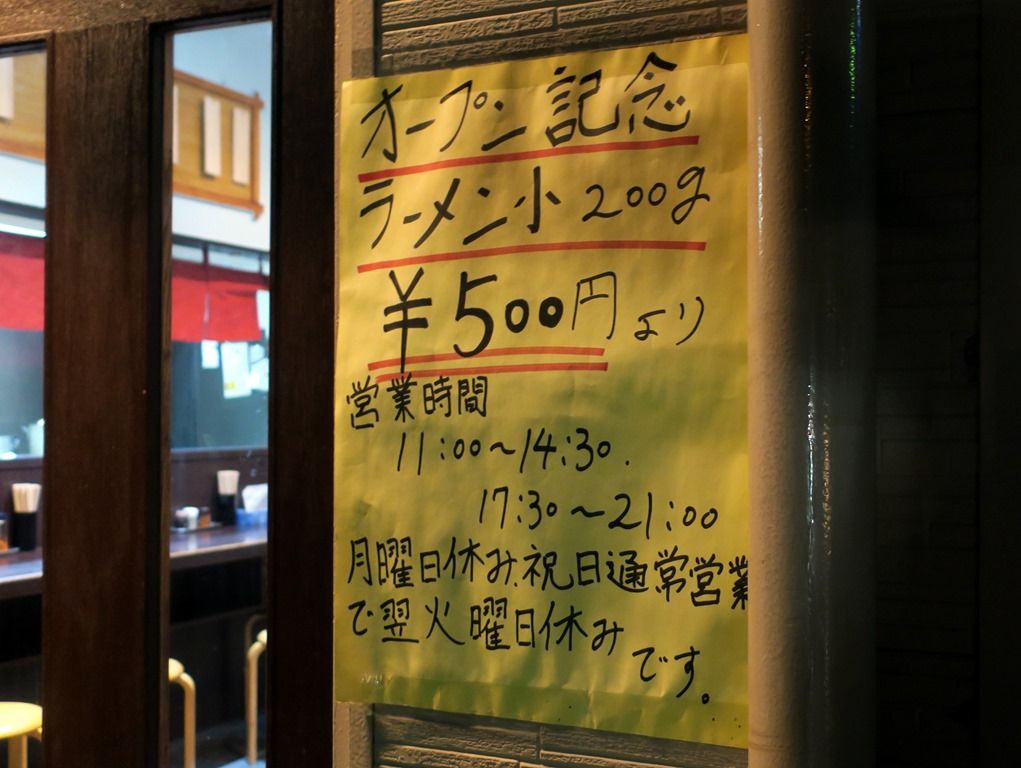 オープン記念
ラーメン小200g
¥500円より
営業時間
11:00～14:30.
17:30～21:00
月曜日休み、祝日通常営業
で翌火曜日休み
です。